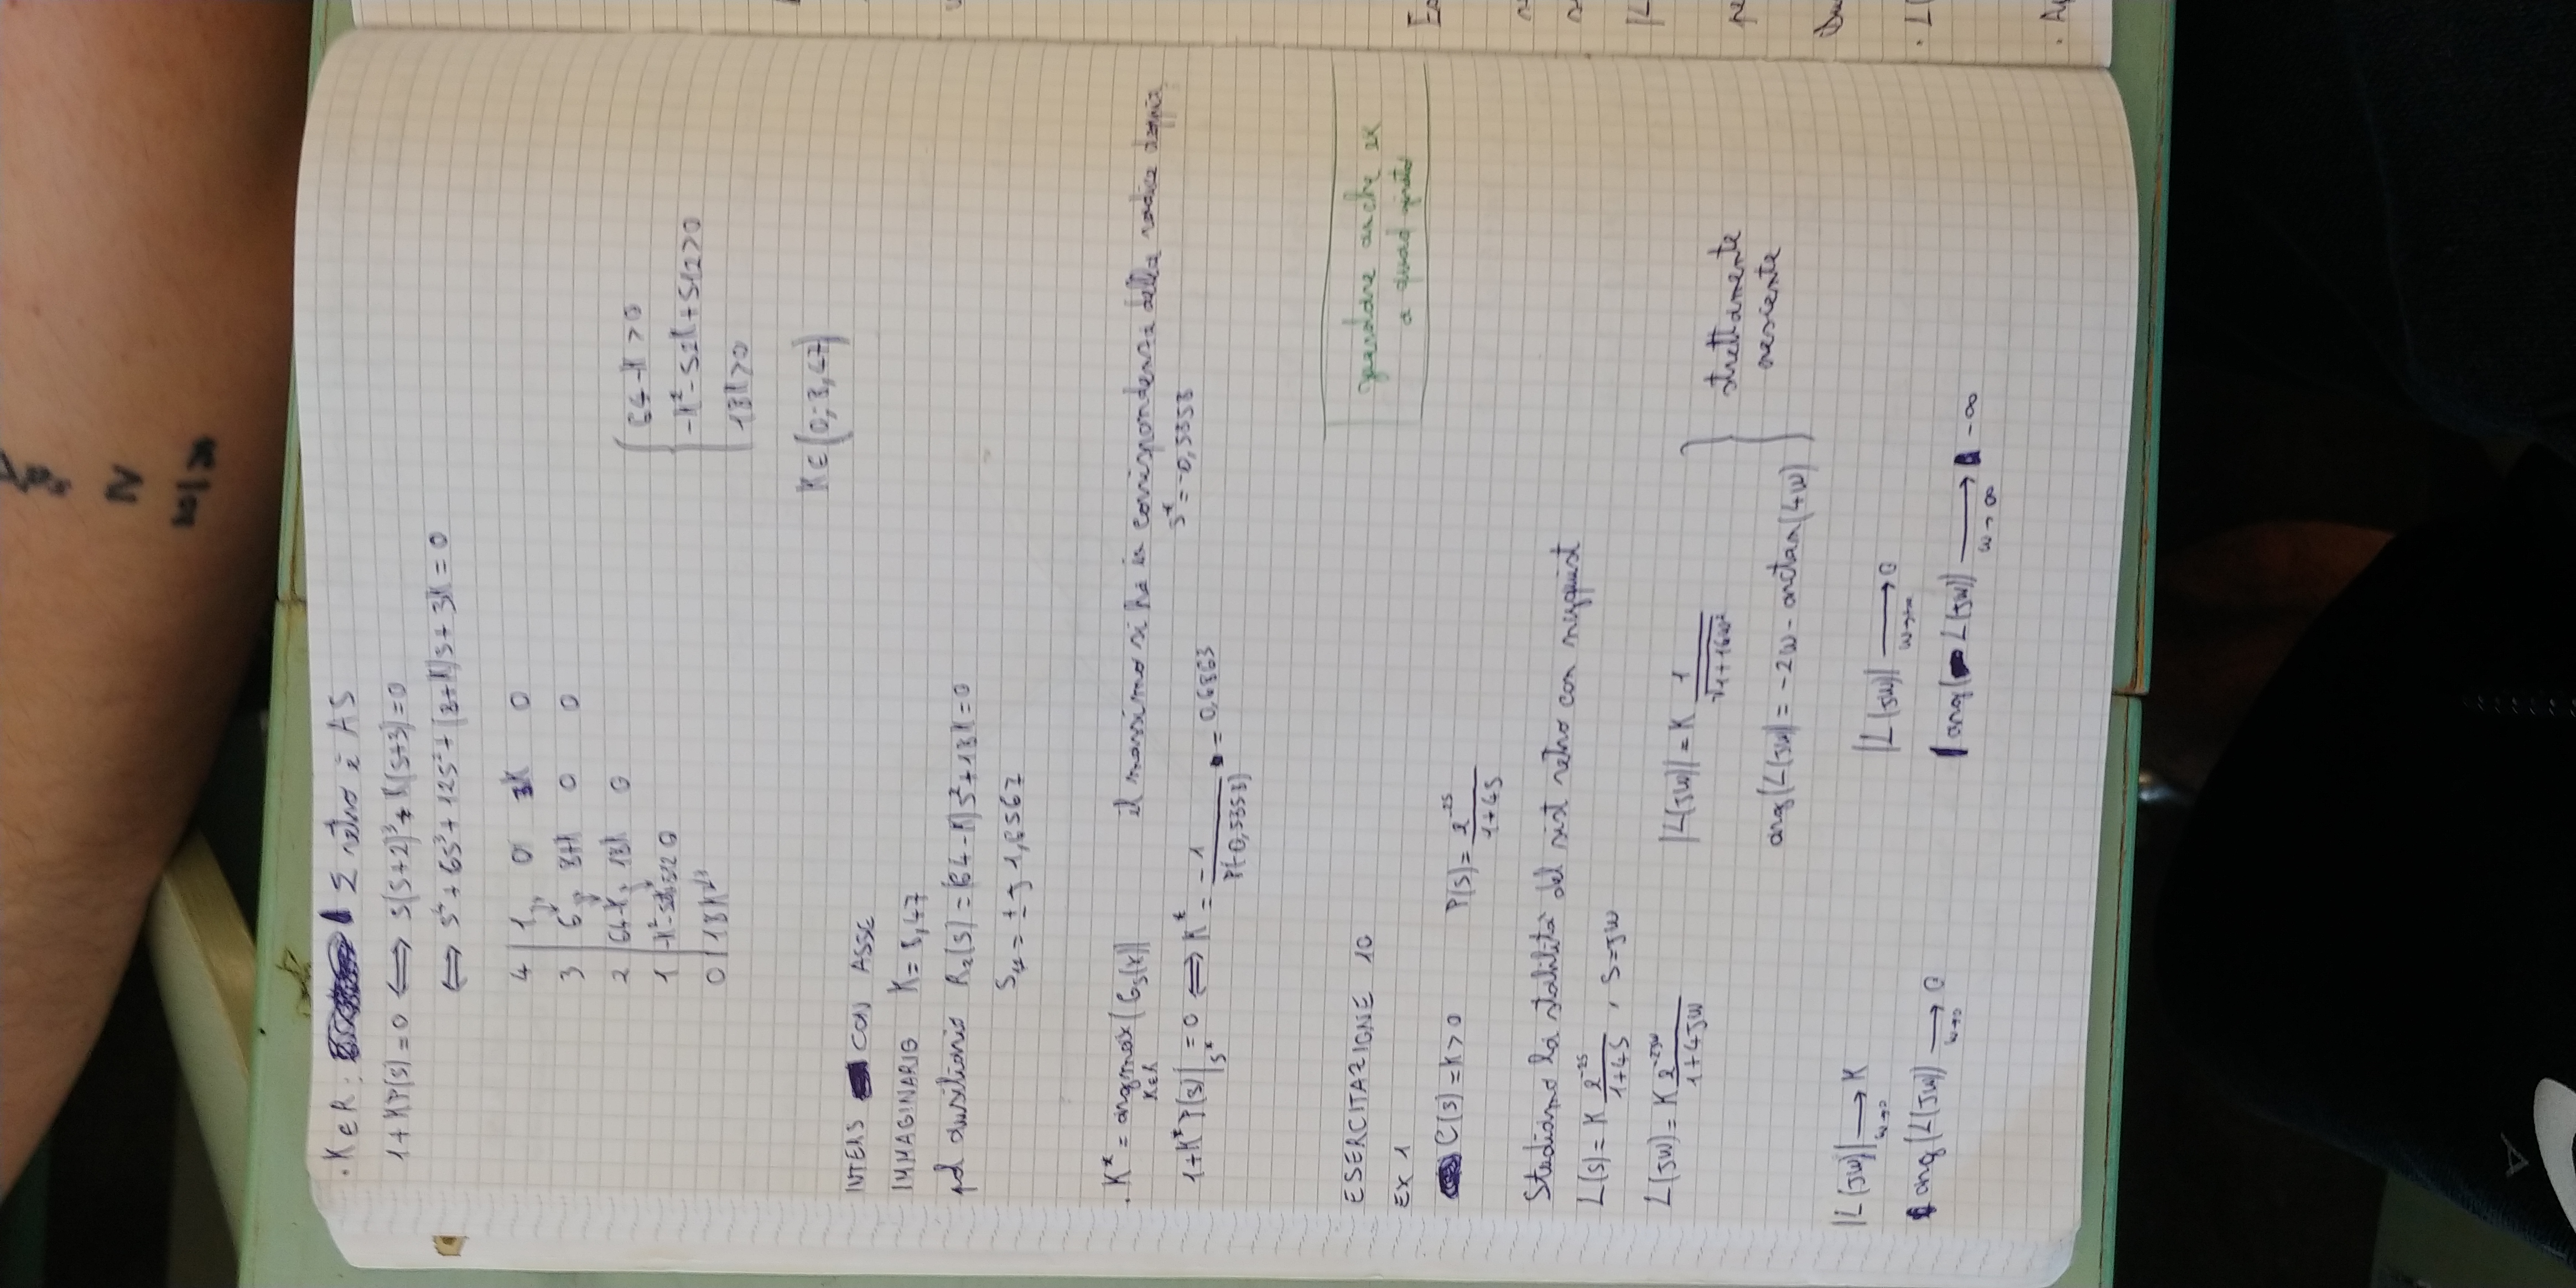 IV
. K ∈ R : Σ retro è AS
1+KP(s) = 0 ⟺ s(s+2)³ + K(s+3) = 0
⟺ s⁴ + 6s³ + 12s² + (8+K)s + 3K = 0
4 | 1 0 3K 0
3 | 6 8+K 0 0
2 | 64-K 18K 0
1 | -K²-52K+512 0
0 | 18K
{ 64-K > 0
-K²-52K+512>0
18K>0
K ∈ (0; 8,47)
INTERS CON ASSE
IMMAGINARIO K = 8,47
pol ausiliario R₂(s) = (64-K)s²+18K = 0
= ± j 1,6567
. K* = argmax (Gs(K)) il massimo si ha in corrispondenza della radice doppia
K∈R s* = -0,5358
1+K* P(s)|s* = 0 ⟺ K* = -1 / P(-0,5358) = 0,6863
ESERCITAZIONE 10
guardare anche ex
a quad
EX 1
C(s) = K > 0 P(s) = e^-2s / 1+4s
Studiamo la stabilità del sist retro con nyquist
L(s) = K e^-2s / 1+4s , s=jω
L(jω) = K e^-2jω / 1+4jω |L(jω)| = K 1 / √1+16ω²
arg(L(jω)) = -2ω - arctan(4ω) } strettamente
|L(jω)| → K ω→0 |L(jω)| → 0 ω→+∞
arg(L(jω)) → 0 ω→0 arg(L(jω)) → -∞ ω→∞